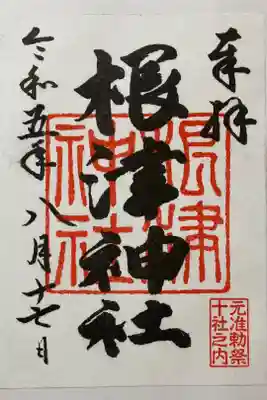 奉拝
根津神社
根津神社
元准勅祭
十社之内
令和五年八月十七日